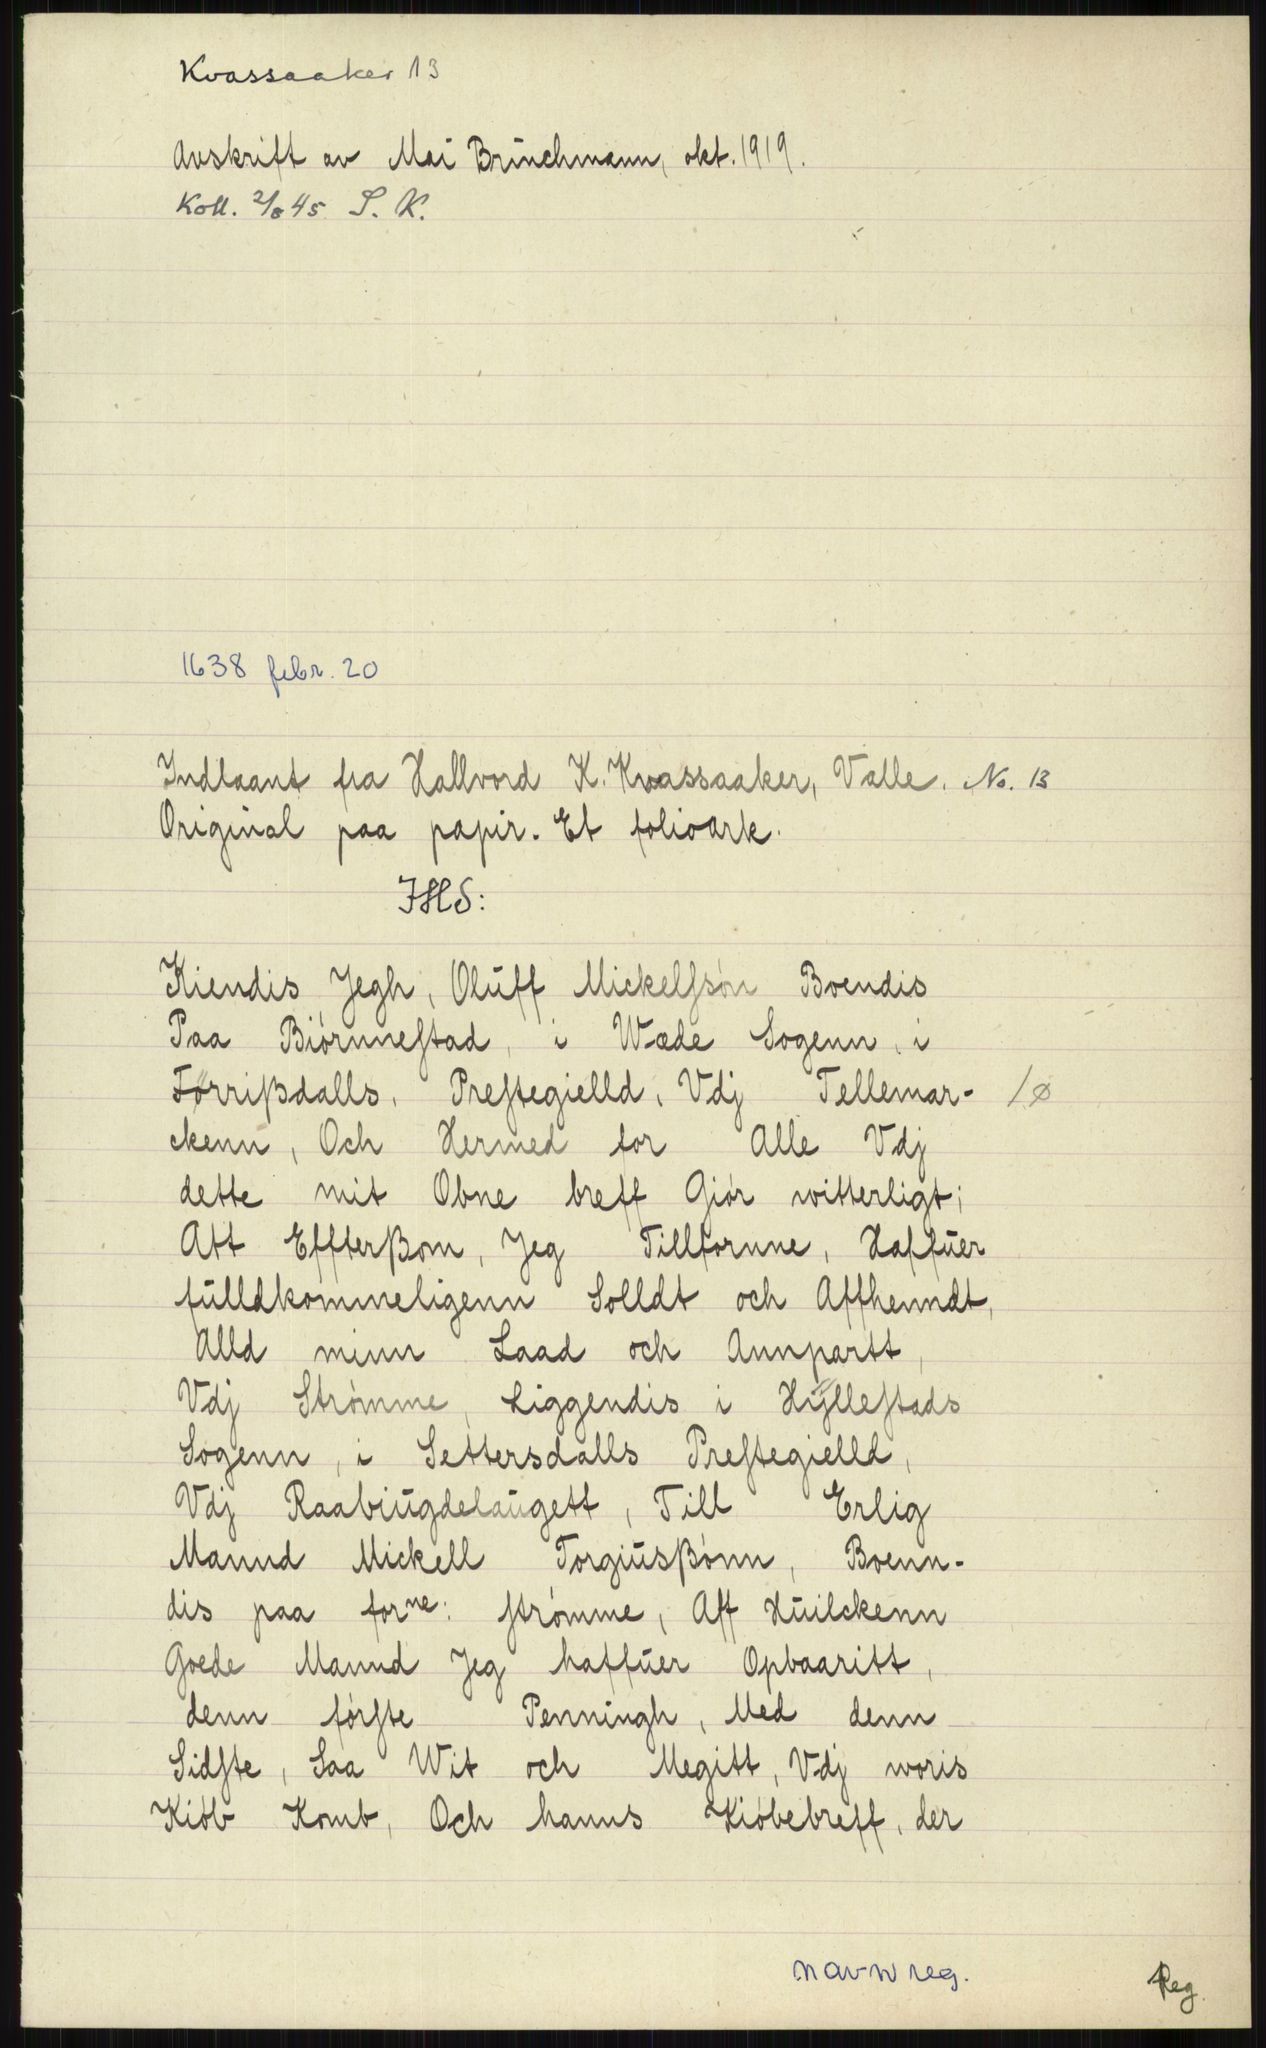 Kvassaaker 13
Avskrift av Mai Brinchmann, okt. 1919.
Koll. 2/8 45 S. K.
1638 febr. 20
Indlaant fra Hallvord K. Kvassaaker, Valle. No. 13
Original paa papir. Et folioark.
IHS:
Kiendis Jegh, Oluff Mickelſsøn Boendis
Paa Biørnneſtad, i Wæde Sogenn, i
Førrißdalls, Preſtegielld, Vdj Tellemar- /ø
ckenn, Och Hermed for Alle Vdj
dette mit Obne breff Giør witterligt;
Att Effterßom, Jeg Tillfornne, Haffuer
fulldkommeligenn Solldt och Affhenndt,
Alld minn Laad och Annpartt,
Vdj Strømme, Liggendis i Hÿlleſtads
Sogenn, i Settersdalls Preſtegielld,
Vdj Raabiugdelaugett, Till Erlig
Mannd Mickell Torgiusßønn, Boenn-
dis paa forne: ſtrømme, Aff Huilckenn
Goede Mannd Jeg haffuer Opbaaritt,
denn førſte Penningh, Med denn
Sidſte, Saa Wit och Megitt, Vdj woris
Kiøb Komb, Och hanns Kiøbebreff, der
navnreg.
Reg.